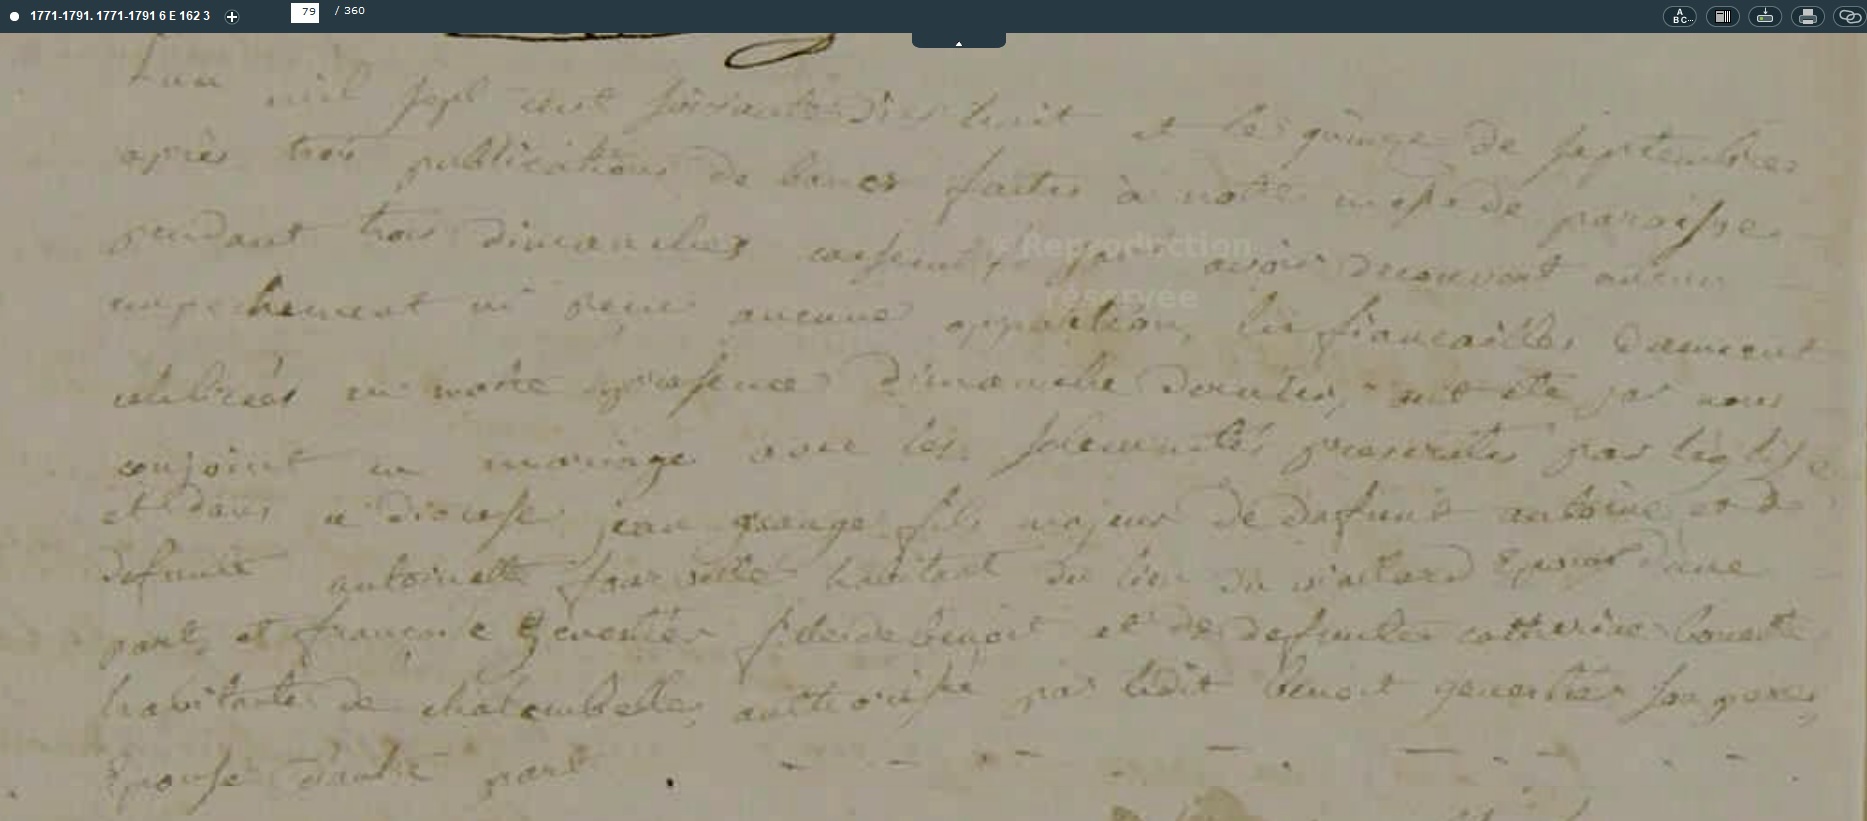 1771-1791. 1771-1791 6 E 162 3
79 / 360
A BC...
L'an mil sept cent soixante dix huit et le quinze de septembre
après trois publications de bancs faites à notre messe de paroisse
pendant trois dimanches sans avoir decouvert aucun
© Reproduction réservée
empechement ni reçu aucune opposition, les fiancailles dument
celebrées en notre presence dimanche dernier, ont été par nous
conjoint en mariage avec les solemnités prescrites par leglise
et dans ce diocese jean grange fils majeur de defunt antoine et de
defunte antoinette habitant du lieu du Epoux d'une
part, et françoise geventier fille de benoit et de defunte catherine
habitante de authorisée par ledit benoit geventier son pere,
Epouse d'autre part